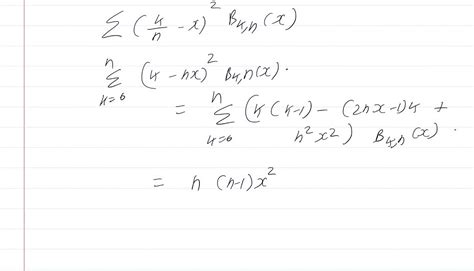 ∑ (k/n - x)² B_{k,n}(x)
n
∑ (k - nx)² B_{k,n}(x).
k=0
= n
∑ (k(k-1) - (2nx-1)k +
k=0 n²x²) B_{k,n}(x).
= n (n-1)x²